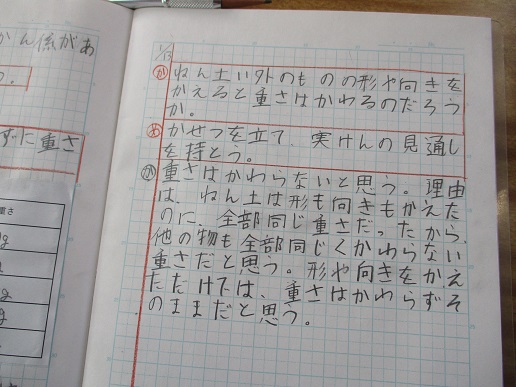 かん係があ
ずに重さ
重さ
g
g
g
g
1/13
か ねん土い外のものの形や向きを
かえると重さはかわるのだろう
か。
あ かせつを立て、実けんの見通し
を持とう。
か 重さはかわらないと思う。理由
は、ねん土は形も向きもかえた
のに、全部同じ重さだったから、
他の物も全部同じくかわらない
重さだと思う。形や向きをかえ
ただけでは、重さはかわらずそ
のままだと思う。